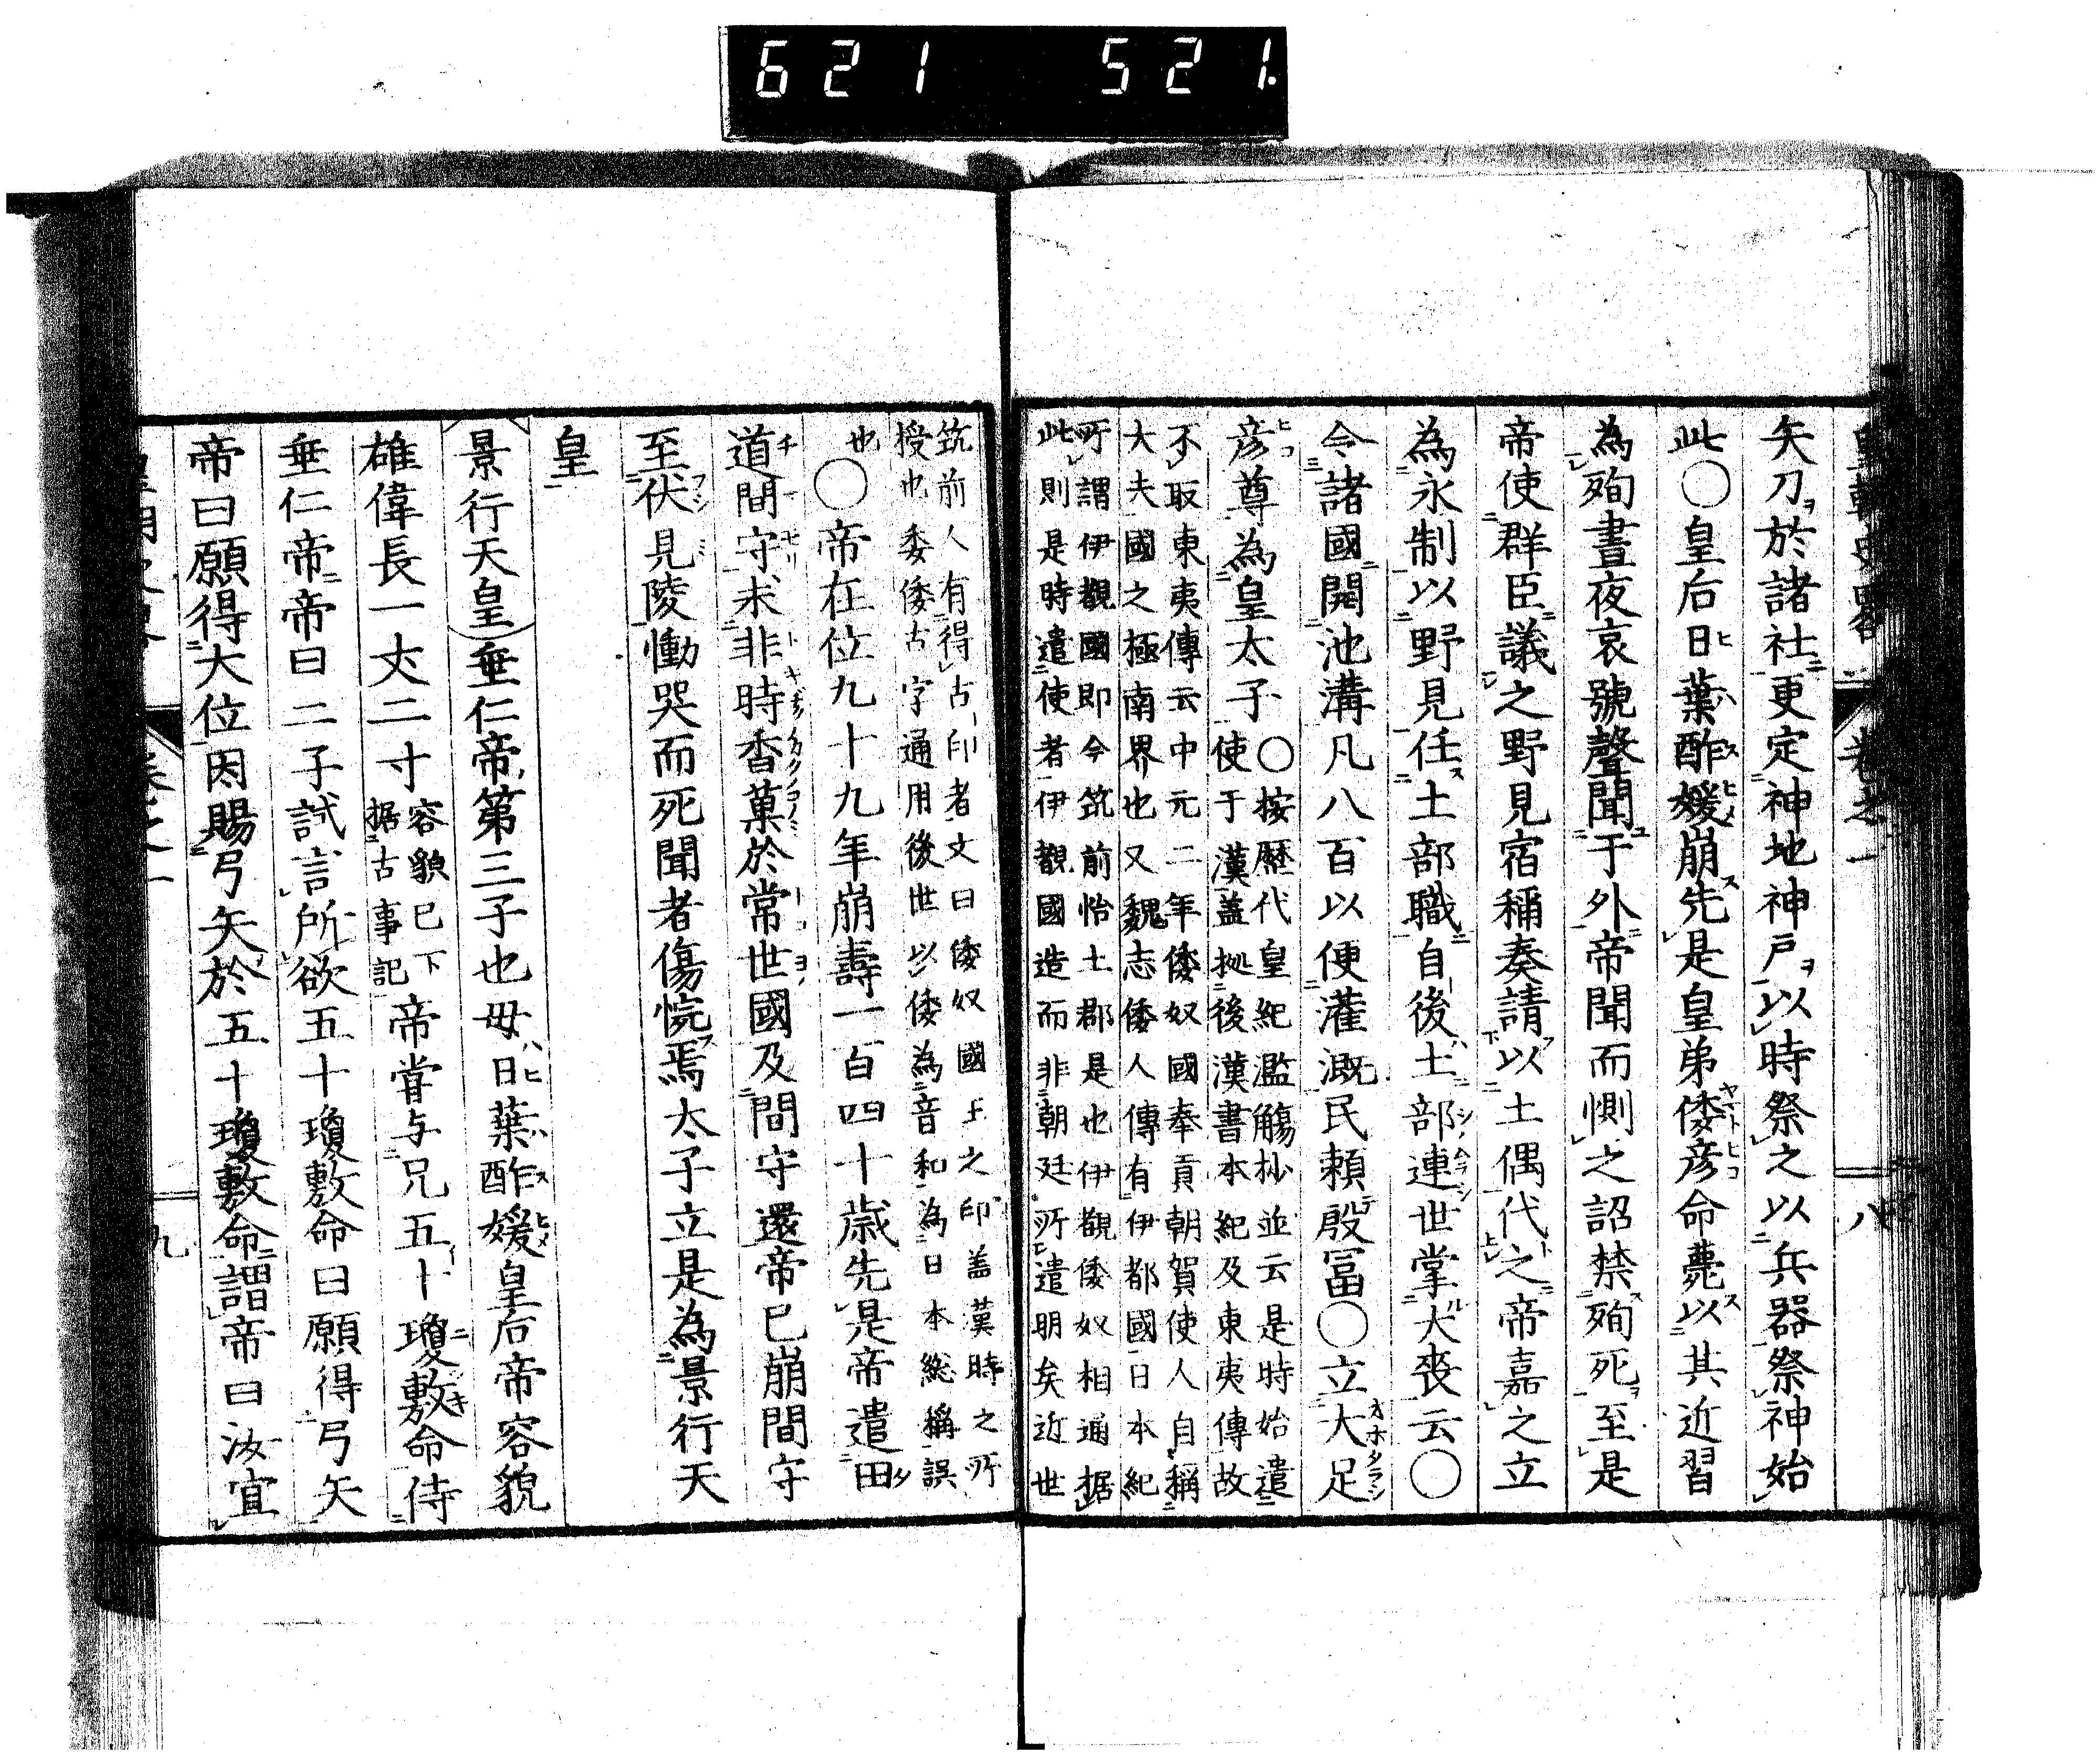 621 521.
矢刀於諸社更定神地神戸以時祭之以兵器祭神始
此〇皇后日葉酢媛崩先是皇弟倭彦命薨以其近習
為殉晝夜哀號聲聞于外帝聞而惻之詔禁殉死至是
帝使群臣議之野見宿稱奏請以土偶代之帝嘉之立
為永制以野見任土部職自後土部連世掌大喪云〇
令諸國開池溝凡八百以便灌漑民頼殷冨〇立大足
彦尊為皇太子〇按歴代皇紀濫觴抄並云是時始遣
使于漢盖拠後漢書本紀及東夷傳故
不取東夷傳云中元二年倭奴國奉貢朝賀使人自稱
大夫國之極南界也又魏志倭人傳有伊都國日本紀
所謂伊觀國即今筑前怡土郡是也伊觀倭奴相通据
此則是時遣使者伊觀國造而非朝廷所遣明矣近世
筑前人有得古印者文曰倭奴國王之印盖漢時之所
授也委倭古字通用後世以倭為音和為日本総稱誤
也〇帝在位九十九年崩壽一百四十歳先是帝遣田
道間守求非時香菓於常世國及間守還帝已崩間守
至伏見陵慟哭而死聞者傷惋焉太子立是為景行天
皇
景行天皇垂仁帝第三子也母日葉酢媛皇后帝容貌
雄偉長一丈二寸容貌已下据古事記帝甞与兄五十瓊敷命侍
垂仁帝帝曰二子試言所欲五十瓊敷命曰願得弓矢
帝曰願得大位因賜弓矢於五十瓊敷命謂帝曰汝宜
卷之一
八
九